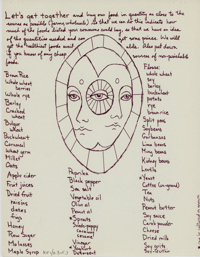 Let's get together and buy our food in quantity as close to the
source as possible (farmers, wholesale). So that we can do this indicate how
much of the foods listed your commune could buy, so that we have an idea
of the quantities needed and can get some prices. We will
get the healthiest foods available. Also put down
if you know of any cheap sources of non-poisonable
foods.
Brown Rice
Whole wheat
berries
Whole rye
Barley
Cracked
wheat
Bulgar
wheat
Buckwheat
Cornmeal
Wheat germ
Millet
Oats
Apple cider
Fruit juices
Dried fruit
raisins
dates
figs
Honey
Raw Sugar
Molasses
Maple Syrup
Paprika
Black pepper
Sea salt
Vegetable oil
Olive oil
Peanut oil
Sprouts
Vinegar
Flours:
whole wheat
rye
barley
buckwheat
potato
rice
brown rice
Split peas
Soybeans
Garbanzos
Lima beans
Mung beans
Kidney beans
Lentils
Yeast
Coffee (un-ground)
Tea
Nuts
Peanut butter
Soy sauce
Carob powder
Cheese
Dried milk
Soy grits